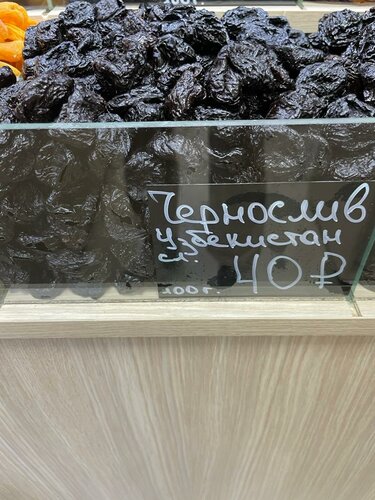 Чернослив
Узбекистан
100 г. 40₽